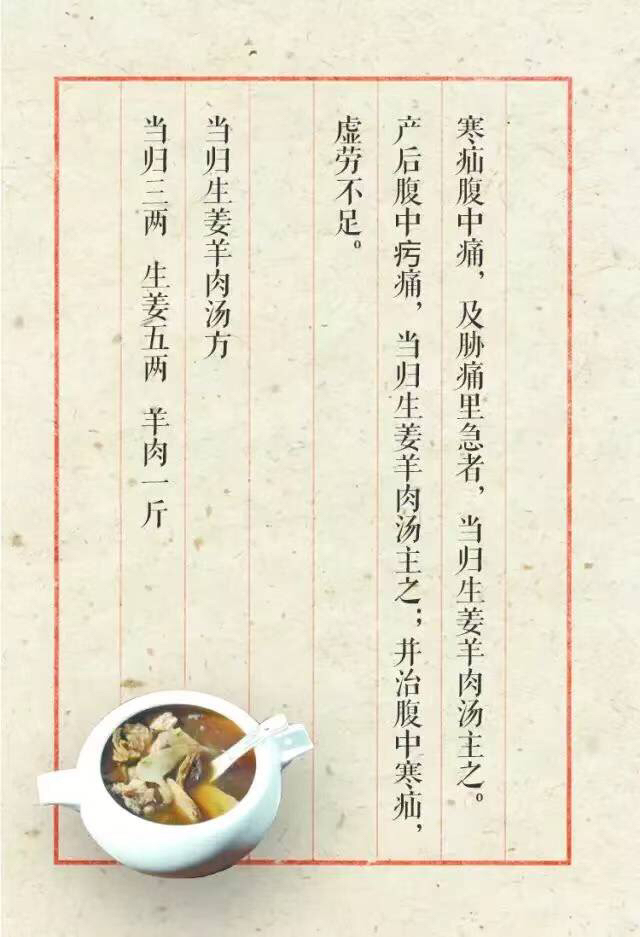 寒疝腹中痛，及胁痛里急者，当归生姜羊肉汤主之。
产后腹中㽲痛，当归生姜羊肉汤主之；并治腹中寒疝，
虚劳不足。
当归生姜羊肉汤方
当归三两 生姜五两 羊肉一斤